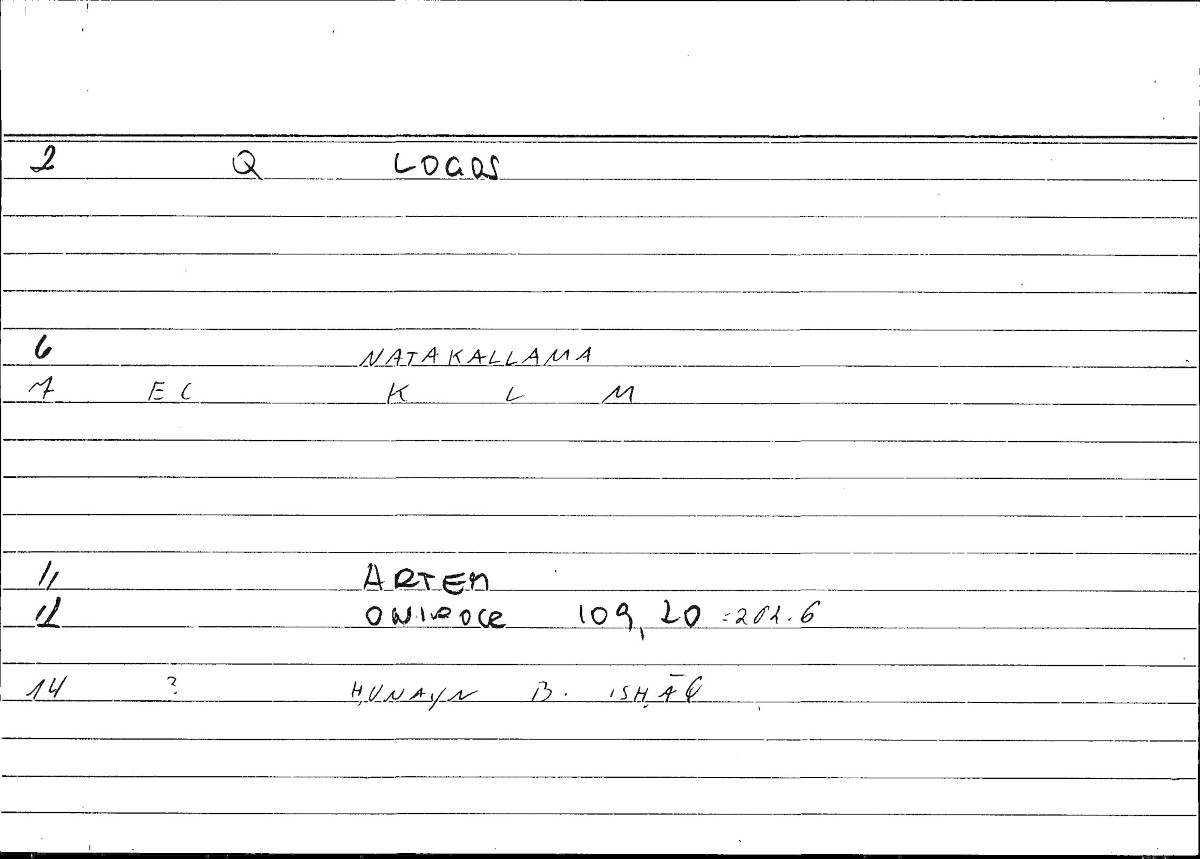 2 Q LOGOS
6 NATAKALLAMA
7 EC K L M
11 ARTEM
12 ONIROCR 109, 20 = 202.6
14 ? ḤUNAYN B. ISḤĀQ